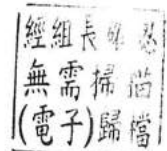 經組長
無需掃描
(電子)歸檔